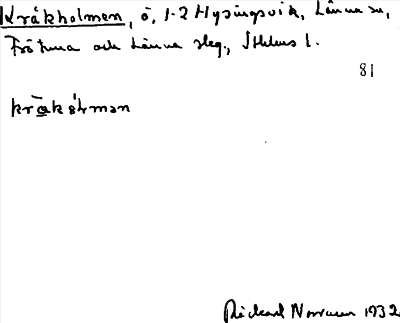 Kråkholmen, ö, 1-2 Hysingsvik, Länna sn,
Frötuna och Länna skg., Sthlms l.
81
kråkɵlmən
Rickard Norman 1932